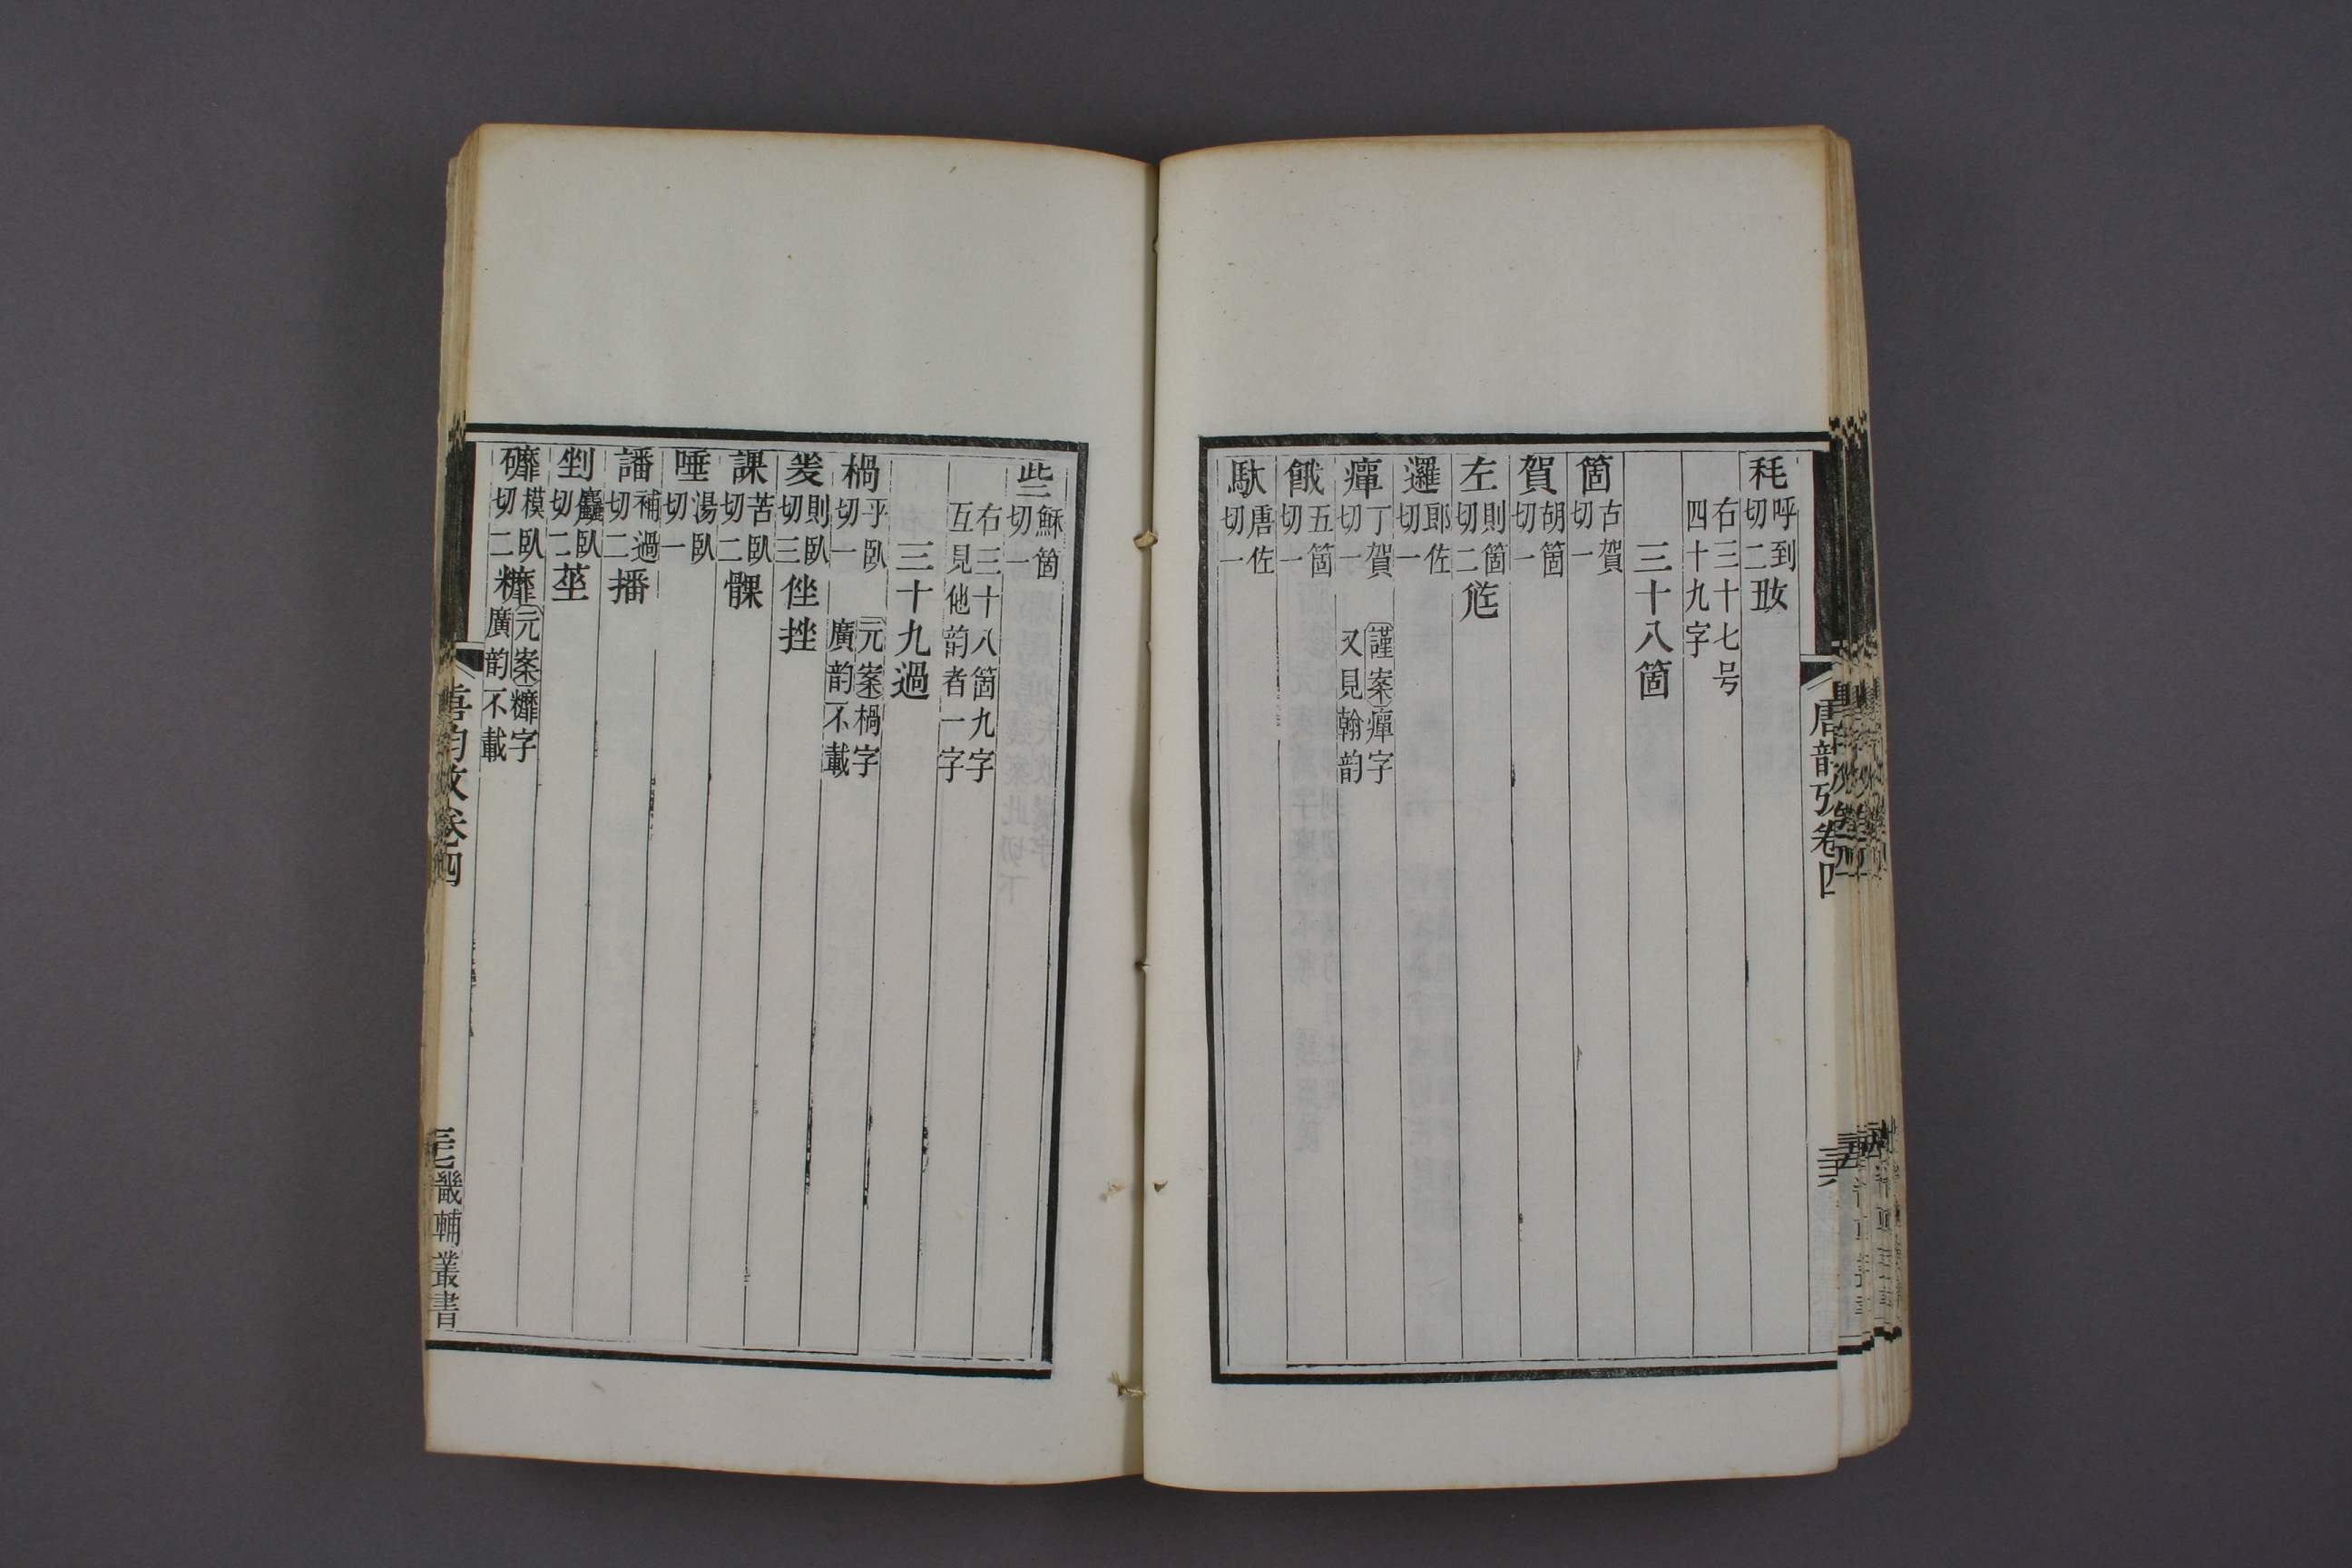 唐韵攷卷四
三六
秏呼到切二𡚽
右三十七号
四十九字
三十八箇
箇古賀切一
賀胡箇切一
左則箇切二㝾
邏郎佐切一
癉丁賀切一 謹案癉字又見翰韵
餓五箇切一
馱唐佐切一
些穌箇切一
右三十八箇九字
互見他韵者一字
三十九過
楇乎臥切一 元案楇字廣韵不載
夎則臥切三侳挫
課苦臥切二髁
唾湯臥切一
譒補過切二播
剉麤臥切二莝
䃺模臥切二䊳 元案䊳字廣韵不載
唐韵攷卷四
三七
畿輔叢書